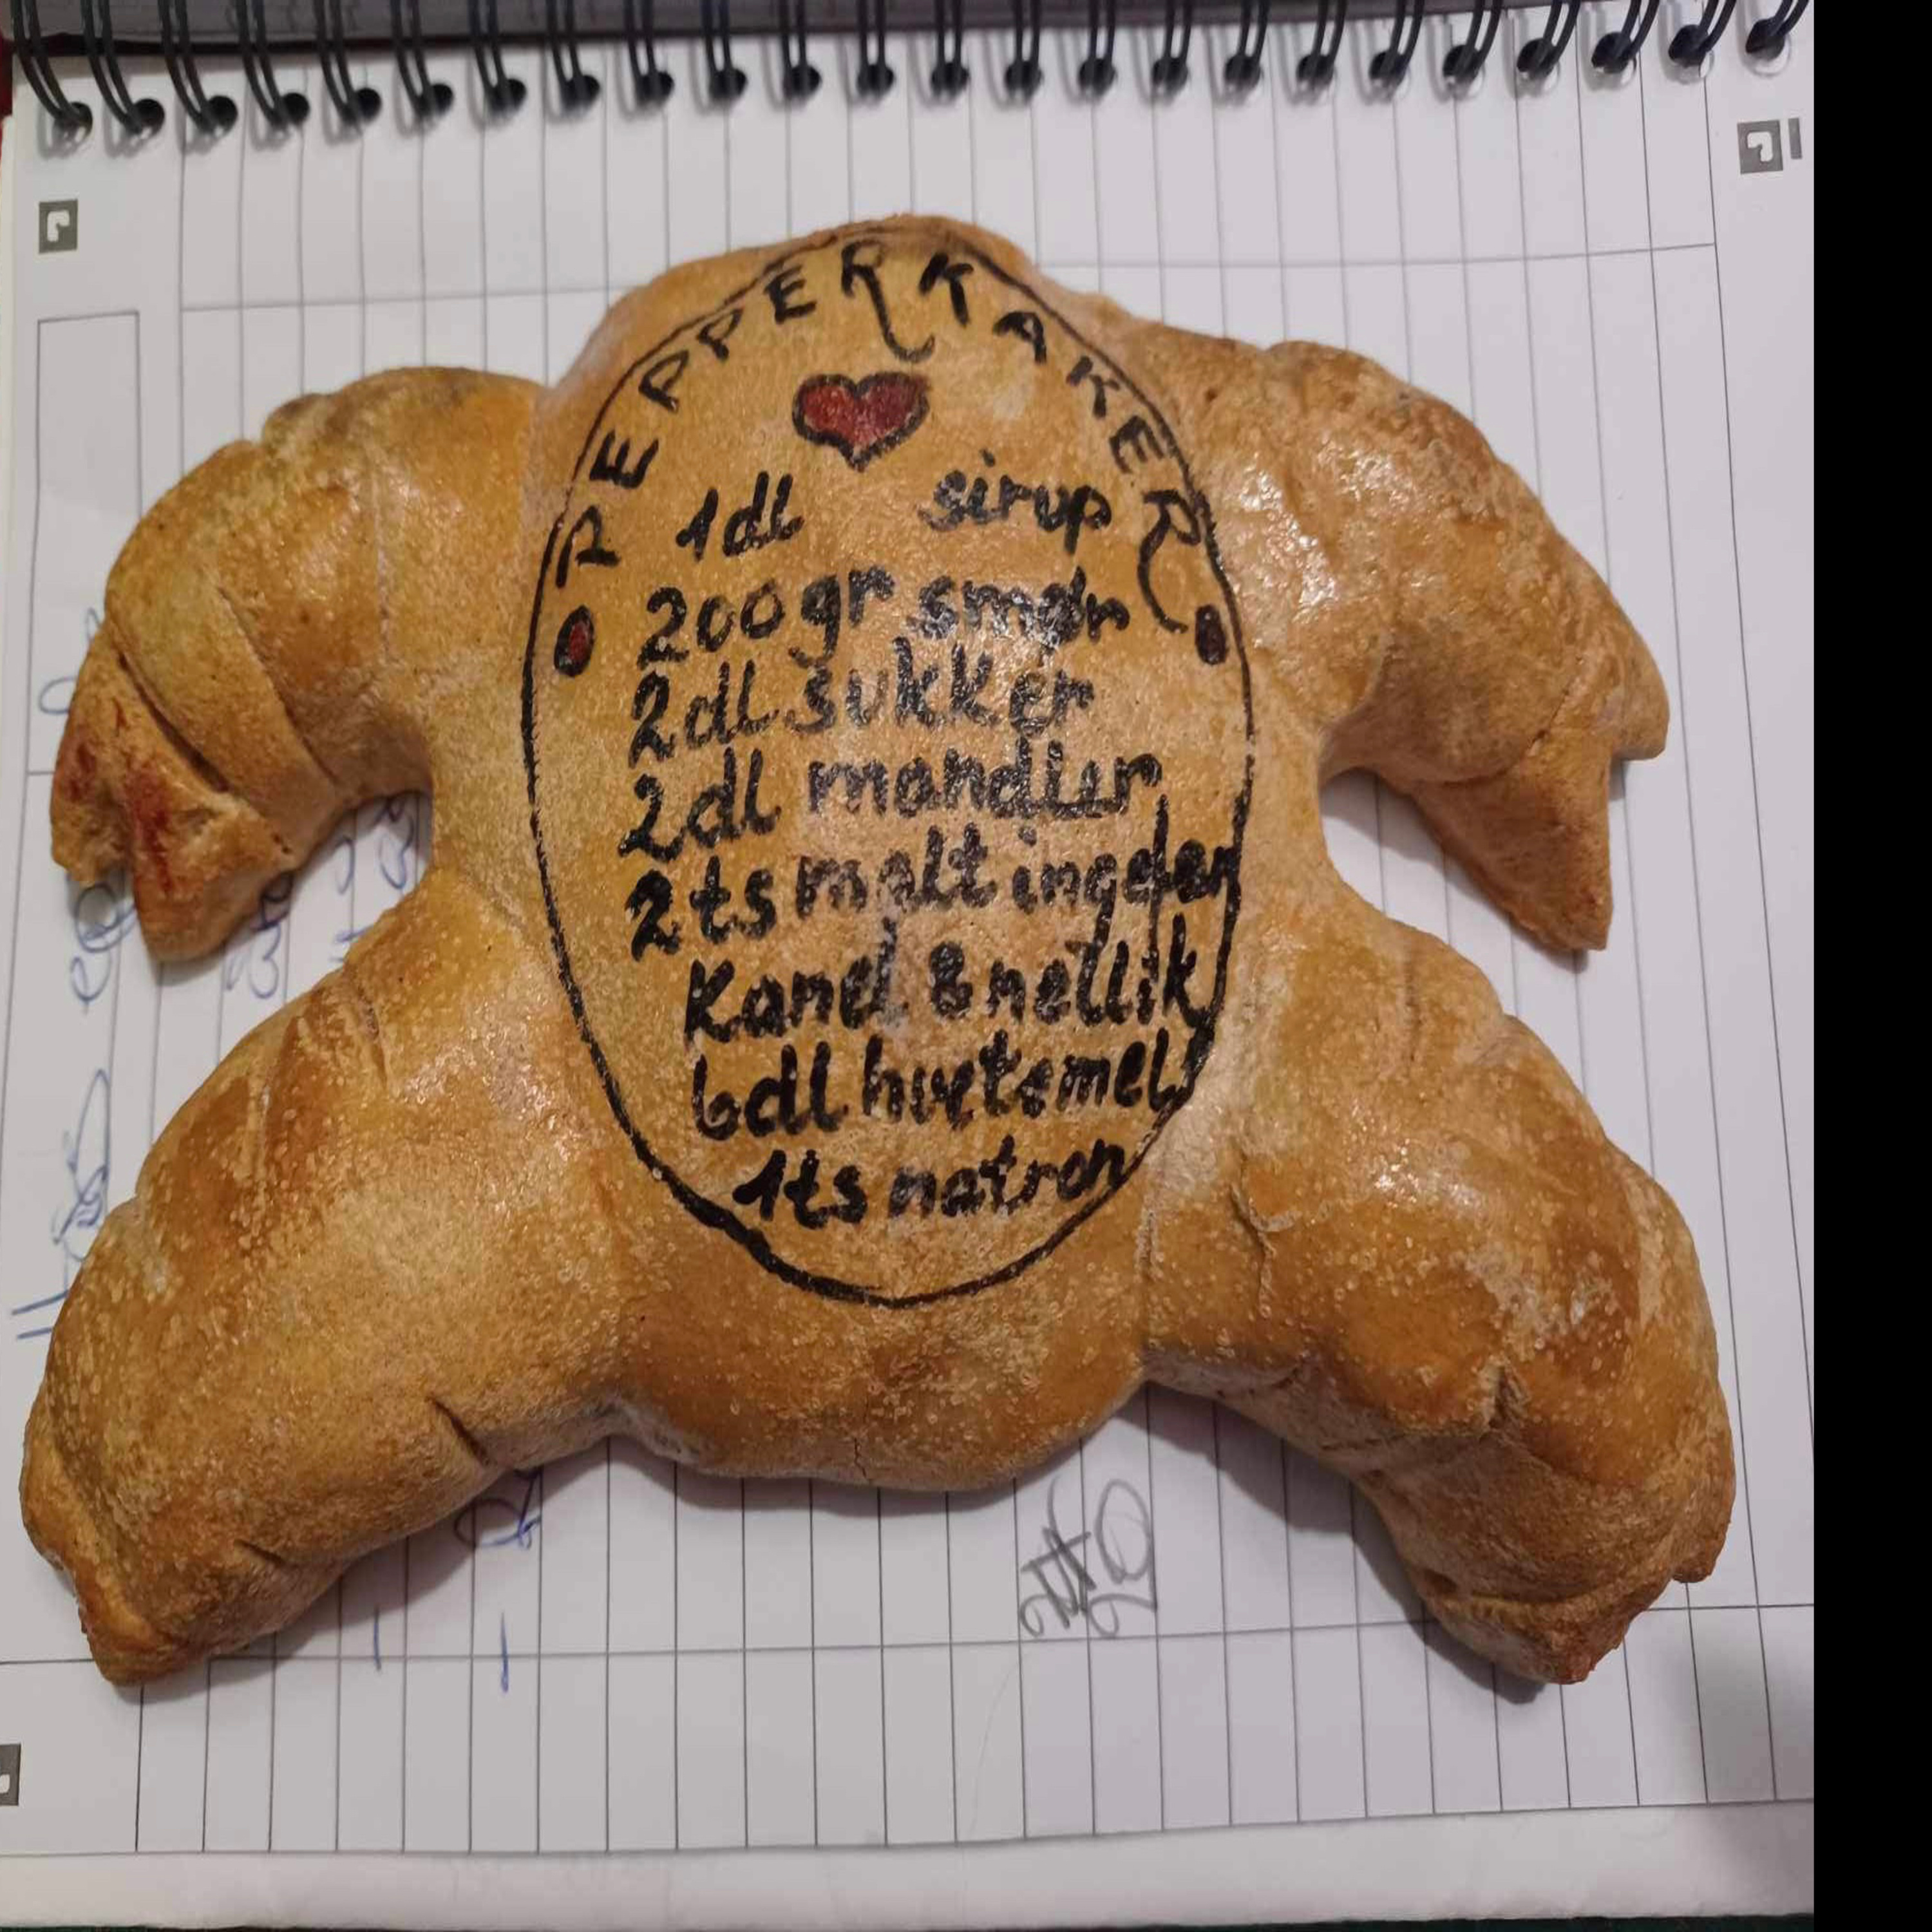 PEPPERKAKER
1dl sirup
200gr smør
2dl sukker
2dl mandler
2ts malt ingefær
Kanel & nellik
6dl hvetemel
1ts natron